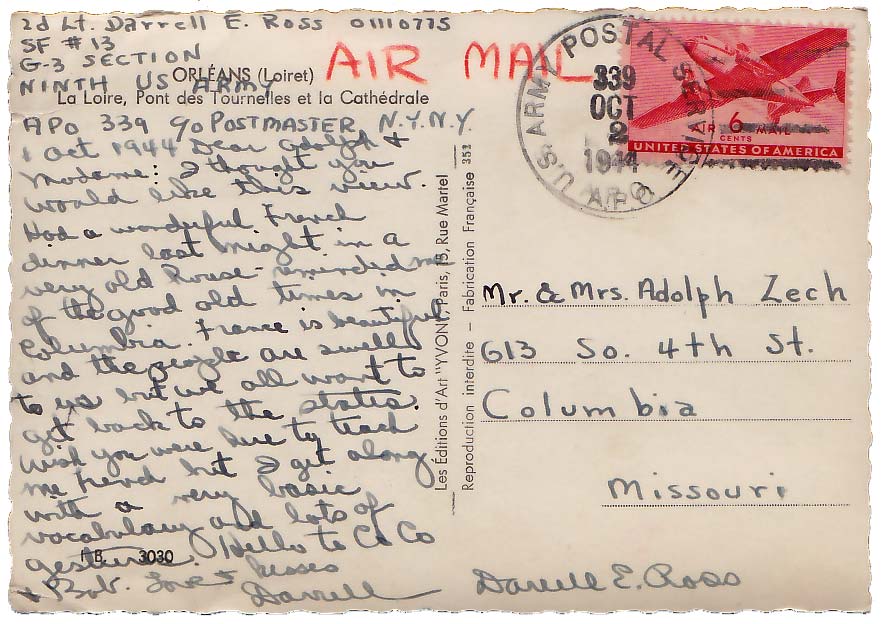 2d Lt. Darrell E. Ross 01110775
SF # 13
G-3 SECTION
NINTH US ARMY
ORLÉANS (Loiret)
La Loire, Pont des Tournelles et la Cathédrale
APO 339 c/o POSTMASTER N.Y.N.Y.
1 Oct 1944 Dear Adolph &
Madame: I thought you
would like this view.
Had a wonderful French
dinner last night in a
very old house - reminded me
of the good old times in
Columbia. France is beautiful
and the people are swell
to us but we all want to
get back to the states.
Wish you were here to teach
me but I get along
with a very basic
vocabulary and lots of
gestures. Hello to Co Co
+ Bob. Love & kisses
Darrell
F B. 3030
Les Éditions d'Art "YVON", Paris, 15, Rue Martel
Reproduction interdite – Fabrication Française 352
AIR MAIL
U.S. ARMY POSTAL SERVICE
339
OCT
2
1944
A.P.O.
AIR 6 MAIL
CENTS
UNITED STATES OF AMERICA
Mr. & Mrs. Adolph Zech
613 So. 4th St.
Columbia
Missouri
Darrell E. Ross